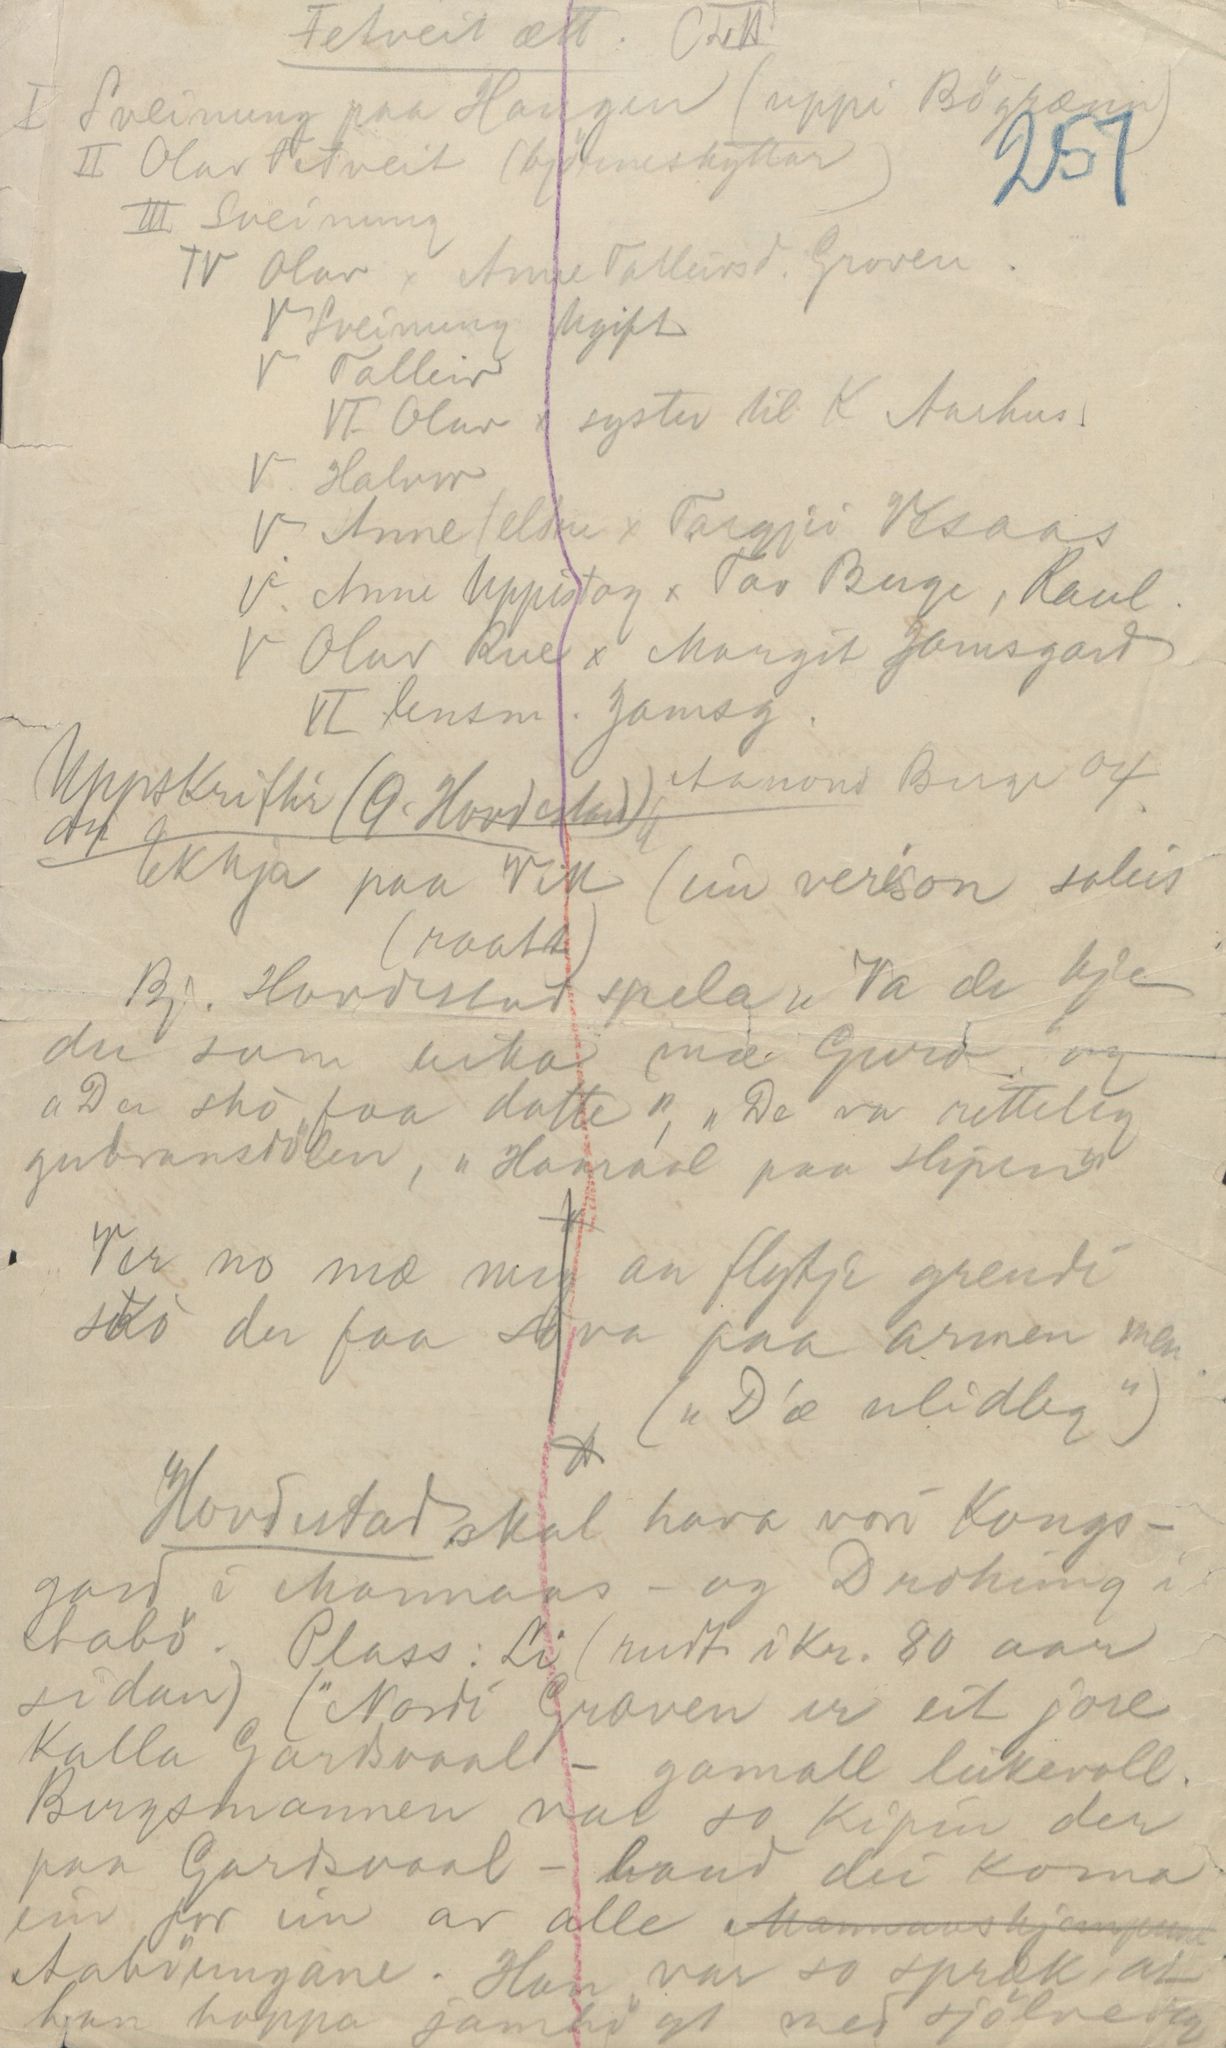 Fetveit ætt.
I Sveinung paa Haugen (uppi Bögrænn)
257
II Olav Fetveit (björneskyttar)
III Sveinung
IV Olav x Anne Talleivsd. Groven.
V Sveinung Ugift
V Talleiv
VI Olav x syster til K Aarhus.
V Halvor
V Anne (eldre x Targjei Vesaas
V. Anne Uppistog x Tov Berge, Raul.
V Olav Rue x Margit Jamsgard
VI lensm. Jamsg.
Uppskrifter (O. Hovdestad) Aamond Berge og
Ekkja paa Vik (ein verison soleis
(raatt)
Bj. Hovdestad spela „Va de kje
du som eika mæ Guro" og
„Der sko faa datte", „De va retteleg
gubransdölen, „Haaraal paa slipen"
Ver no mæ meg an flytje grendi
sko du faa söva paa armen men
(„D'æ ulidleg")
Hovdestad skal hava vori Kongs-
gard i Mannaas - og Drotning i
Aabö. Plass: Li (rudt ikr. 80 aar
sidan) ("Nordi Groven er eit jore
Kalla Gardsvaal - gamall leikevoll.
Bergsmannen var so Kipin der
paa Gardsvaal - baud dei koma
ein for ein av alle Mannaaskjempune
Aaböungane. Han var so spræk at
han hoppa jamhögt med sjölve seg